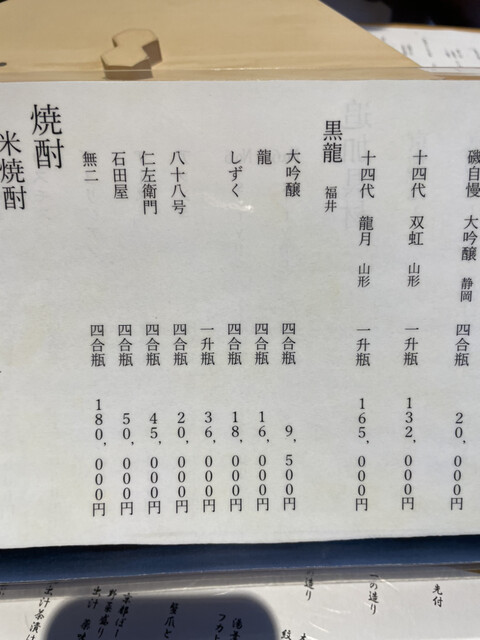 磯自慢 大吟醸 静岡 四合瓶 20,000円
十四代 双虹 山形 一升瓶 132,000円
十四代 龍月 山形 一升瓶 165,000円
黒龍 福井
大吟醸 四合瓶 9,500円
龍 四合瓶 16,000円
しずく 四合瓶 18,000円
一升瓶 36,000円
八十八号 四合瓶 20,000円
仁左衛門 四合瓶 45,000円
石田屋 四合瓶 50,000円
無二 四合瓶 180,000円
焼酎
米焼酎